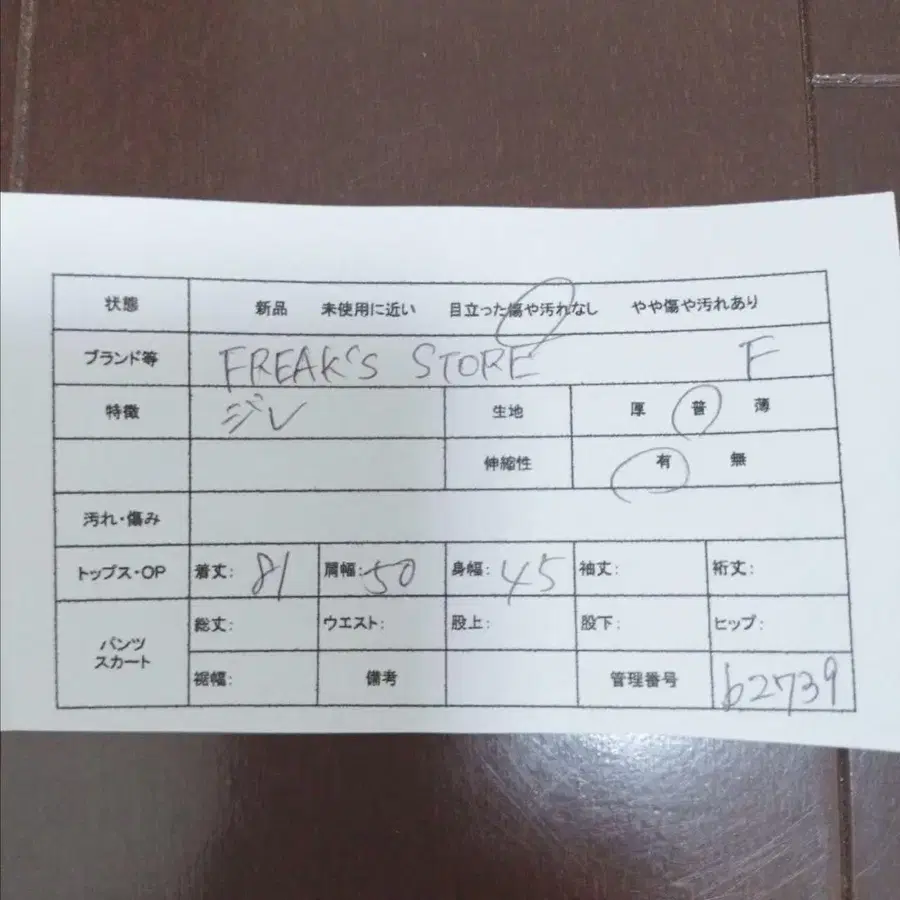 状態 新品 未使用に近い 目立った傷や汚れなし やや傷や汚れあり
ブランド等 FREAK'S STORE F
特徴 ジレ 生地 厚 普 薄
伸縮性 有 無
汚れ・傷み
トップス・OP 着丈: 81 肩幅: 50 身幅: 45 袖丈: 裄丈:
パンツ スカート 総丈: ウエスト: 股上: 股下: ヒップ:
裾幅: 備考 管理番号 b2739